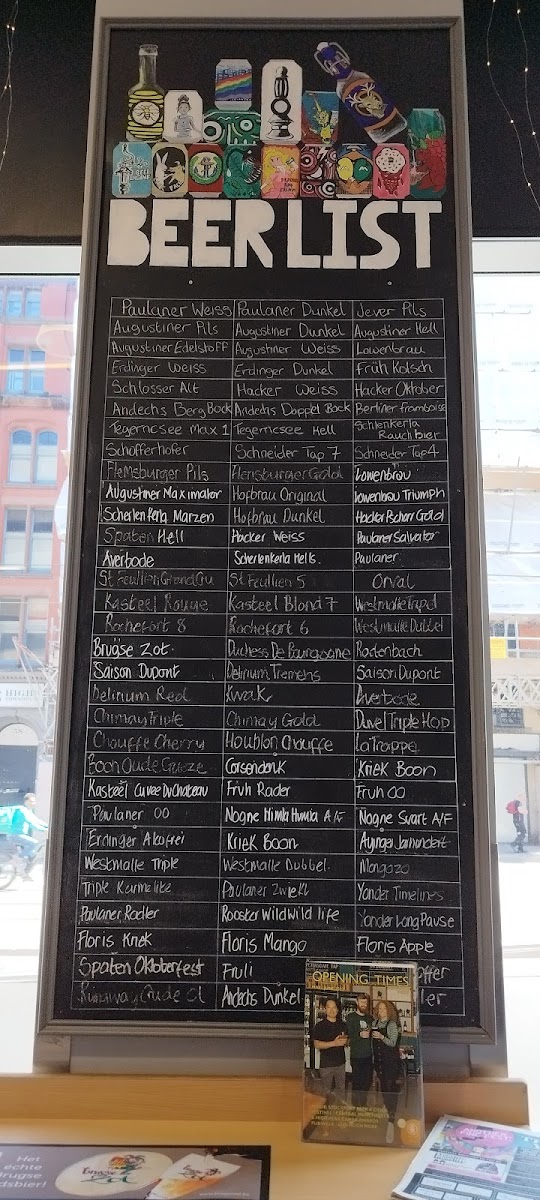 BEER LIST
Paulaner Weiss Paulaner Dunkel Jever Pils
Augustiner Pils Augustiner Dunkel Augustiner Hell
Augustiner Edelstoff Augustiner Weiss Lowenbrau
Erdinger Weiss Erdinger Dunkel Früh Kolsch
Schlosser Alt Hacker Weiss Hacker Oktober
Andechs Berg Bock Andechs Doppel Bock Berliner Framboise
Tegernsee Max 1 Tegernsee Hell Schlenkerla Rauchbier
Schofferhofer Schneider Tap 7 Schneider Tap4
Flensburger Pils Flensburger Gold Lowenbrau
Augustiner Maximator Hofbrau Original Lowenbrau Triumph
Scherlenkerla Marzen Hofbrau Dunkel Hacker Pschorr Gold
Spaten Hell Hacker Weiss Paulaner Salvator
Averbode Scherlenkerla Hells. Paulaner
St Feuillien Grand Cru St Feullien 5 Orval
Kasteel Rouge Kasteel Blond 7 Westmalle Tripel
Rochefort 8 Rochefort 6 Westmalle Dubbel
Brugse Zot. Duchess De Bourgogne Rodenbach
Saison Dupont Delirium Tremens Saison Dupont
Delirium Red Kwak Averbode
Chimay Triple Chimay Gold Duvel Triple Hop
Chouffe Cherry Houblon Chouffe La Trappe
Boon Oude Gueze Corsendonk Kriek Boon
Kasteel Cuvee Du Chateau Fruh Rader Fruh 00
Paulaner 00 Nogne Himla Humla A/F Nogne Svart A/F
Erdinger Alkofrei Kriek Boon Ayinger Jahrhundert
Westmalle Triple Westmalle Dubbel. Mongozo
Triple Karmeliet Paulaner Zwickl Yonder Timelines
Paulaner Radler Rooster Wild Wild life Yonder Long Pause
Floris Kriek Floris Mango Floris Apple
Spaten Oktoberfest Fruli
Runaway Oude Andechs Dunkel
OPENING TIMES
Het
echte
Brugse
Zot